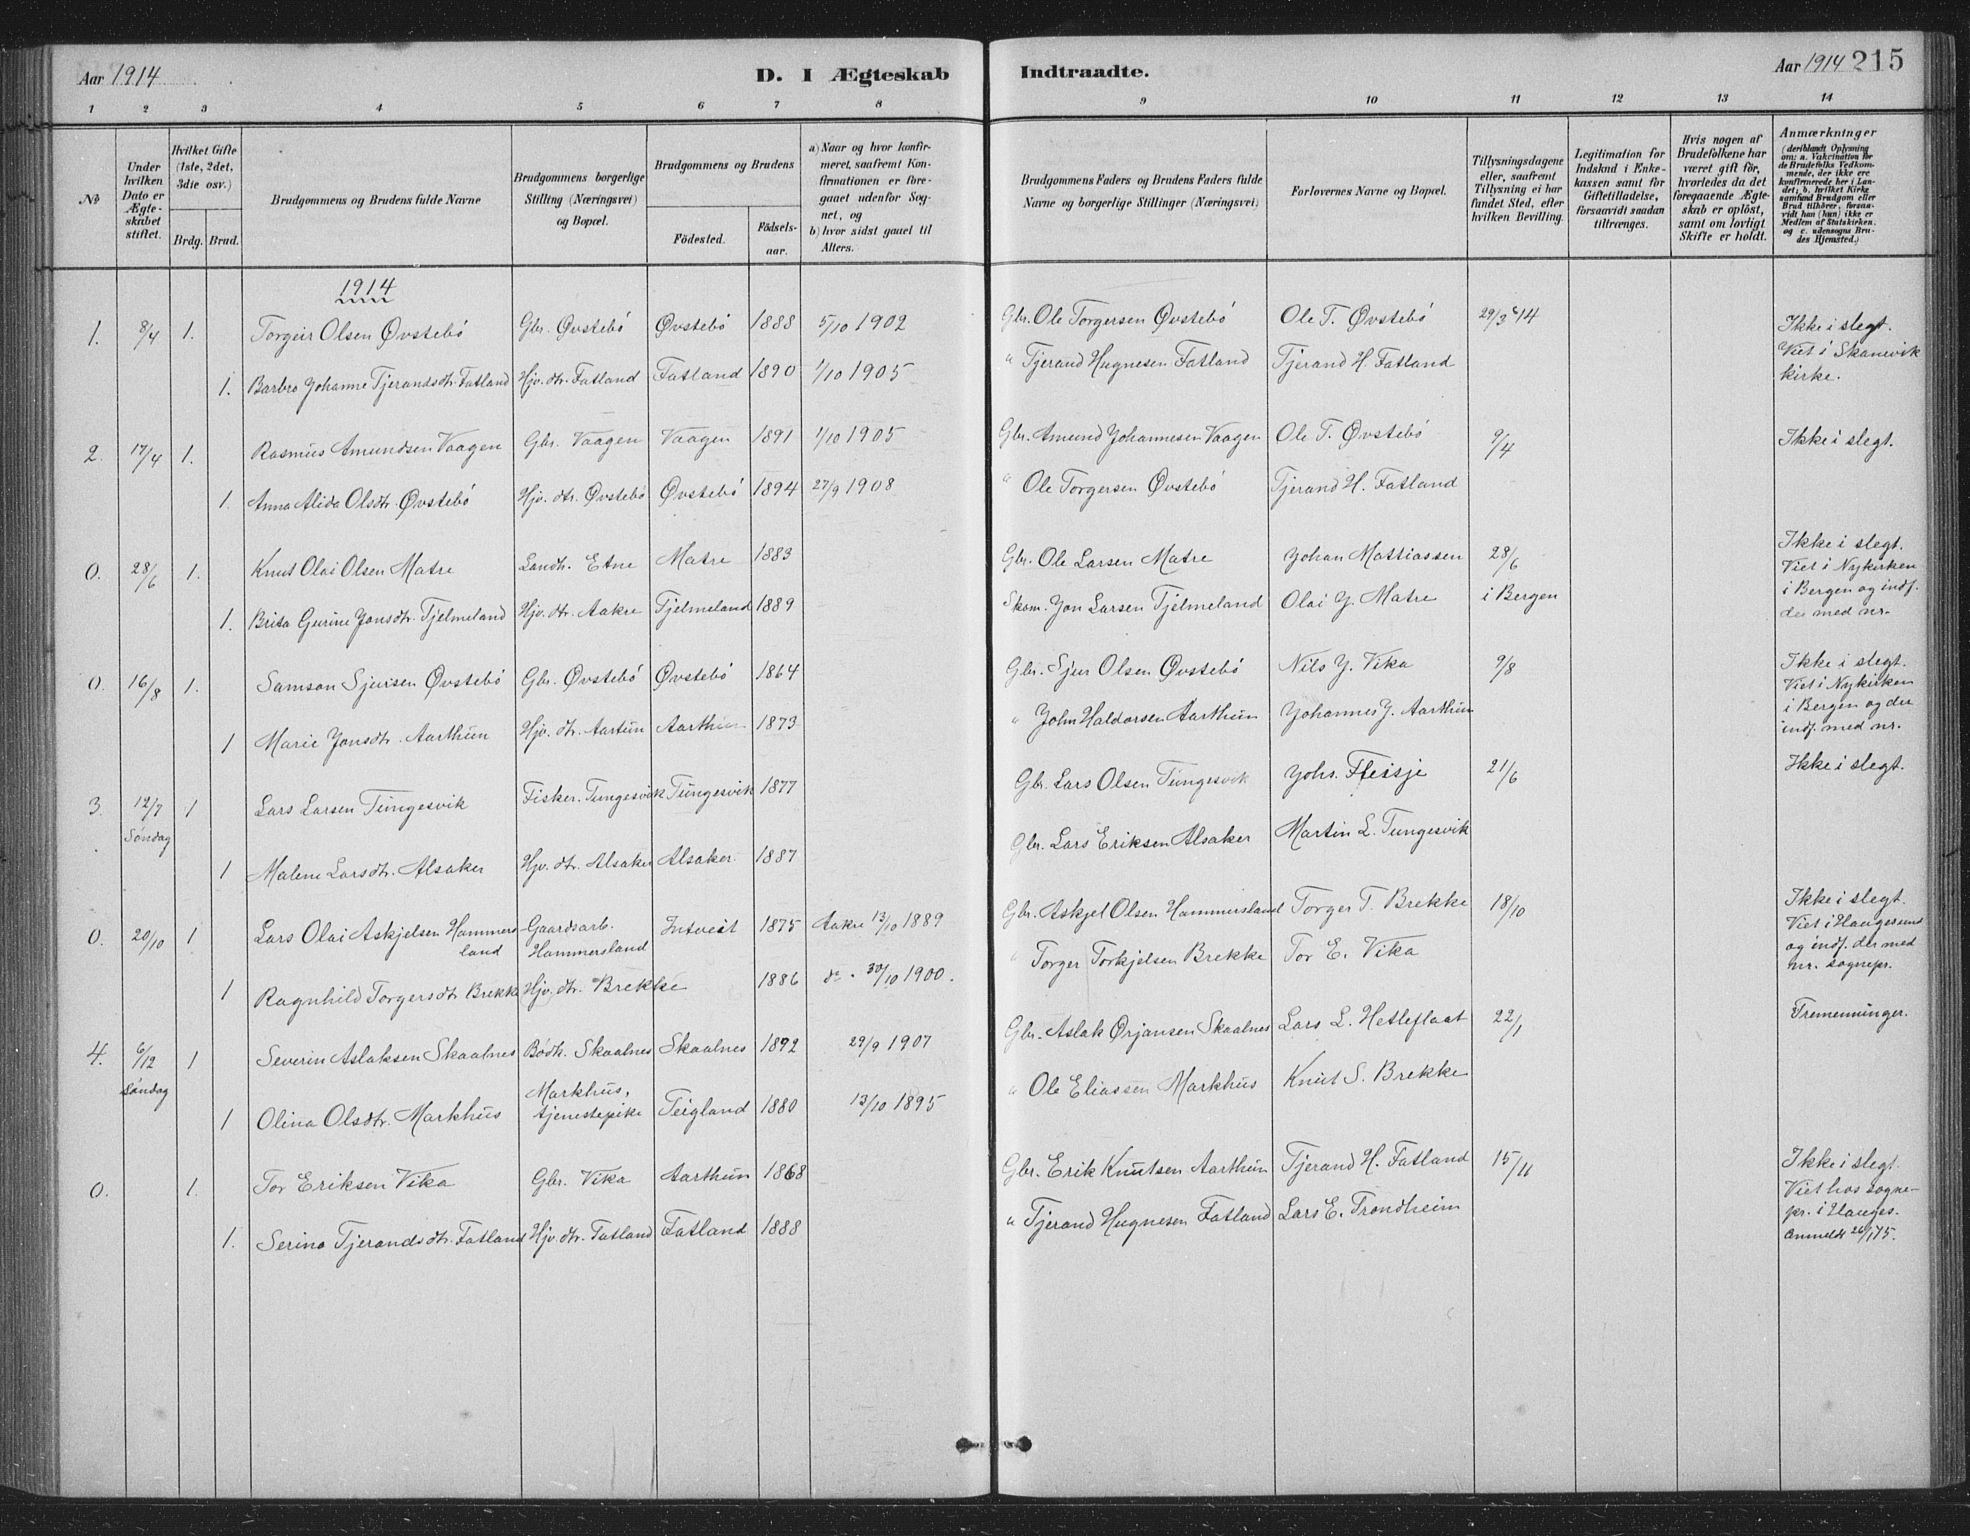 Aar 1914
D. I Ægteskab Indtraadte.
Aar 1914 215
1 2 3 4 5 6 7 8 9 10 11 12 13 14
No
Under hvilken Dato er Ægteskabet stiftet.
Hvilket Gifte (1ste, 2det, 3die osv.)
Brdg. Brud.
Brudgommens og Brudens fulde Navne
Brudgommens borgerlige Stilling (Næringsvei) og Bopæl.
Brudgommens og Brudens
Födested. Födsels-aar.
a) Naar og hvor konfirmeret, saafremt Konfirmationen er foregaaet udenfor Sognet, og
b) hvor sidst gaaet til Alters.
Brudgommens Faders og Brudens Faders fulde Navne og borgerlige Stillinger (Næringsvei)
Forlovernes Navne og Bopæl.
Tillysningsdagene eller, saafremt Tillysning ei har fundet Sted, efter hvilken Bevilling.
Legitimation for Indskud i Enkekassen samt for Giftetilladelse, forsaavidt saadan tiltrænges.
Hvis nogen af Brudefolkene har været gift för, hvorledes da det foregaaende Ægteskab er oplöst, samt om lovligt Skifte er holdt.
Anmærkninger (deriblandt Oplysning om: a. Vakcination for de Brudefolks Vedkommende, der ikke ere konfirmerede her i Landet; b. hvilket Kirkesamfund Brudgom eller Brud tilhörer, forsaavidt han (hun) ikke er Medlem af Statskirken, og c. udensogns Brudes Hjemsted.)
1914
1. 8/4 1. Torgeir Olsen Øvstebö Gbr. Øvstebö Øvstebö 1888 5/10 1902 Gbr. Ole Torgersen Øvstebö Ole T. Øvstebö 29/3 14 Ikke i slegt. Viet i Skanevik kirke.
1. Barbro Johanne Tjerandsdtr. Fatland Hjv. dtr. Fatland Fatland 1890 1/10 1905 " Tjerand Hugnesen Fatland Tjerand H. Fatland
2. 17/4 1. Rasmus Amundsen Vaagen Gbr. Vaagen Vaagen 1891 1/10 1905 Gbr. Amund Johannesen Vaagen Ole T. Øvstebö 9/4 Ikke i slegt.
1. Anna Alida Olsdtr. Øvstebö Hjv. dtr. Øvstebö Øvstebö 1894 27/9 1908 " Ole Torgersen Øvstebö Tjerand H. Fatland
0. 28/6 1. Knut Olai Olsen Matre Landh. Etne Matre 1883 Gbr. Ole Larsen Matre Johan Mattiassen 28/6 Ikke i slegt. Viet i Nykirken i Bergen og indf. der med nr.
1. Brita Gurine Jonsdtr. Tjelmeland Hjv. dtr. Aakre Tjelmeland 1889 Skom. Jon Larsen Tjelmeland Olai J. Matre i Bergen
0. 16/8 1. Samson Sjursen Øvstebö Gbr. Øvstebö Øvstebö 1864 Gbr. Sjur Olsen Øvstebö Nils J. Vika 9/8 Ikke i slegt. Viet i Nykirken i Bergen og der indf. med nr.
1 Marie Jonsdtr. Aarthun Hjv. dtr. Aartun Aarthun 1873 " John Haldorsen Aarthun Johannes J. Aarthun
3. 12/7 Söndag 1 Lars Larsen Tungesvik Fisker. Tungesvik Tungesvik 1877 Gbr. Lars Olsen Tungesvik Johs. Fleisje 21/6 Ikke i slegt.
1 Malene Larsdtr. Alsaker Hjv. dtr. Alsaker Alsaker 1887 Gbr. Lars Eriksen Alsaker Martin L. Tungesvik
0. 20/10 1 Lars Olai Askjelsen Hammersland Gaardsarb. Hammersland Intveit 1875 Aakre 13/10 1889 Gbr. Askjel Olsen Hammersland Torger T. Brekke 18/10 Ikke i slegt. Viet i Haugesund og indf. der med nr. sognepr.
1 Ragnhild Torgersdtr Brekke Hjv. dtr. Brekke 1886 do. 30/10 1900. " Torger Torkjelsen Brekke Tor E. Vika
4. 6/12 Söndag 1 Severin Aslaksen Skaalnes Bödh. Skaalnes Skaalnes 1892 29/9 1907 Gbr. Aslak Ørjansen Skaalnes Lars L. Hetleflaat 22/1 Tremenninger.
1 Olina Olsdtr. Markhus Markhus, tjenestepike Teigland 1880 13/10 1895 " Ole Eliassen Markhus Knut S. Brekke
0. 1. Tor Eriksen Vika Gbr. Vika Aarthun 1868 Gbr. Erik Knutsen Aarthun Tjerand H. Fatland 15/11 Ikke i slegt. Viet hos sognepr. i Hauges. Anmeldt 20/1 15.
1. Serina Tjerandsdtr. Fatland Hjv. dtr. Fatland Fatland 1888 " Tjerand Hugnesen Fatland Lars E. Trondheim